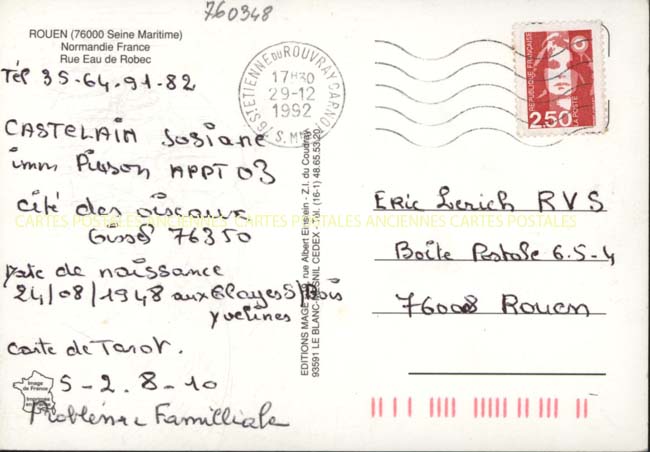 760348
ROUEN (76000 Seine Maritime)
Normandie France
Rue Eau de Robec
Tél 35-64-91-82
CASTELAIN Josiane
imm Pinson APPT 03
cité des oiseaux
76350
Date de naissance
24/08/1948 aux Clayes S/Bois
yvelines
Carte de Tarot.
5-2.8-10
Problème Familliale
Image
de France
76 ST ETIENNE DU ROUVRAY CARNOT
17H30
29-12
1992
S. Mme
REPUBLIQUE FRANÇAISE
2,50
LA POSTE
EDITIONS MAGE rue Albert Einstein - Z.I. du Coudray
93591 LE BLANC-MESNIL CEDEX - Tél. (16-1) 48.65.53.20
Eric Lerich R V S
Boîte Postale 6.5-4
76008 Rouen
CARTES POSTALES ANCIENNES CARTES POSTALES ANCIENNES CARTES POSTALES